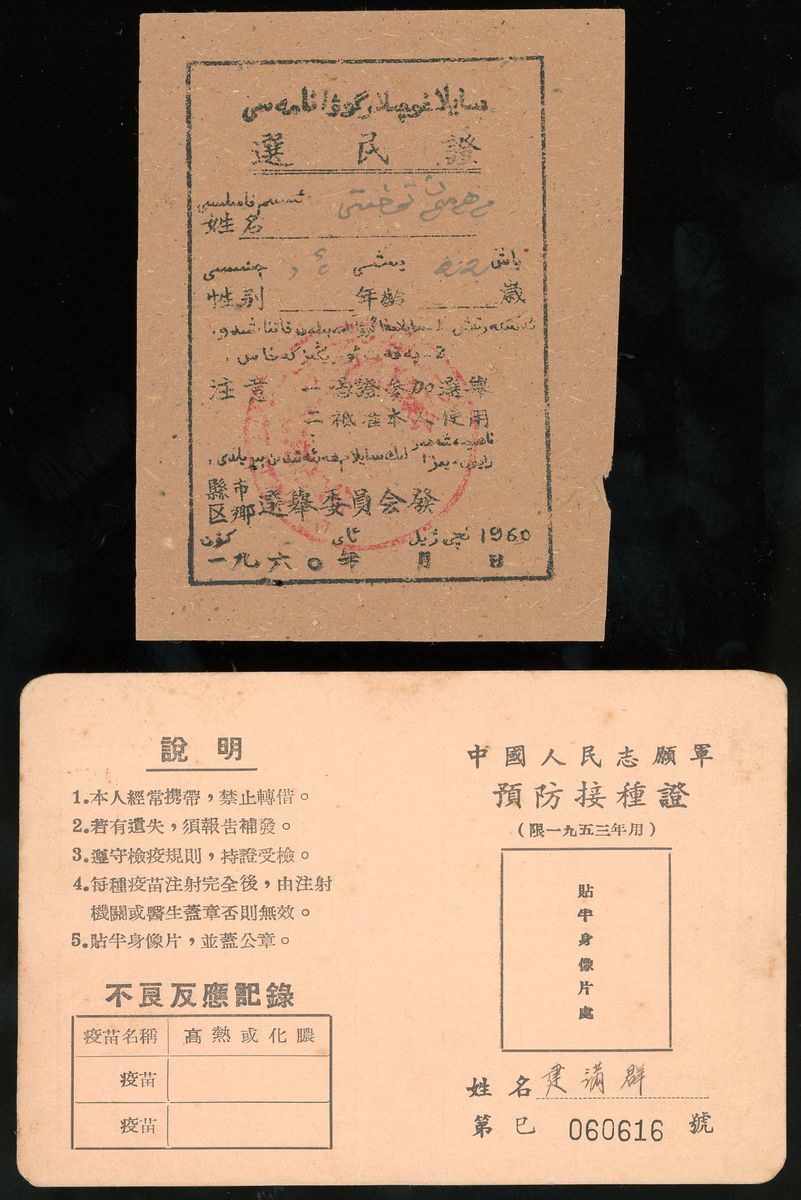 سايلاغوچىلار گۇۋانامەسى
選民證
姓名
جىنسى يېشى 22 ياش
性别 年齡 歲
注意 一 憑證參加選舉
二 祇准本人使用
縣市
区鄉 選舉委員会發
1960
كۈن ئاي يىل
一九六〇年 月 日
説明
1.本人經常携帶，禁止轉借。
2.若有遺失，須報告補發。
3.遵守檢疫規則，持證受檢。
4.每種疫苗注射完全後，由注射
機關或醫生蓋章否則無效。
5.貼半身像片，並蓋公章。
不良反應記錄
疫苗名稱 高熱或化膿
疫苗
疫苗
中國人民志願軍
預防接種證
（限一九五三年用）
貼半身像片處
姓名 建滿群
第 巳 060616 號